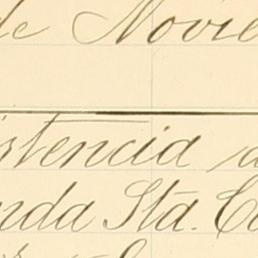 de Novie
istencia d
nda Sta. C